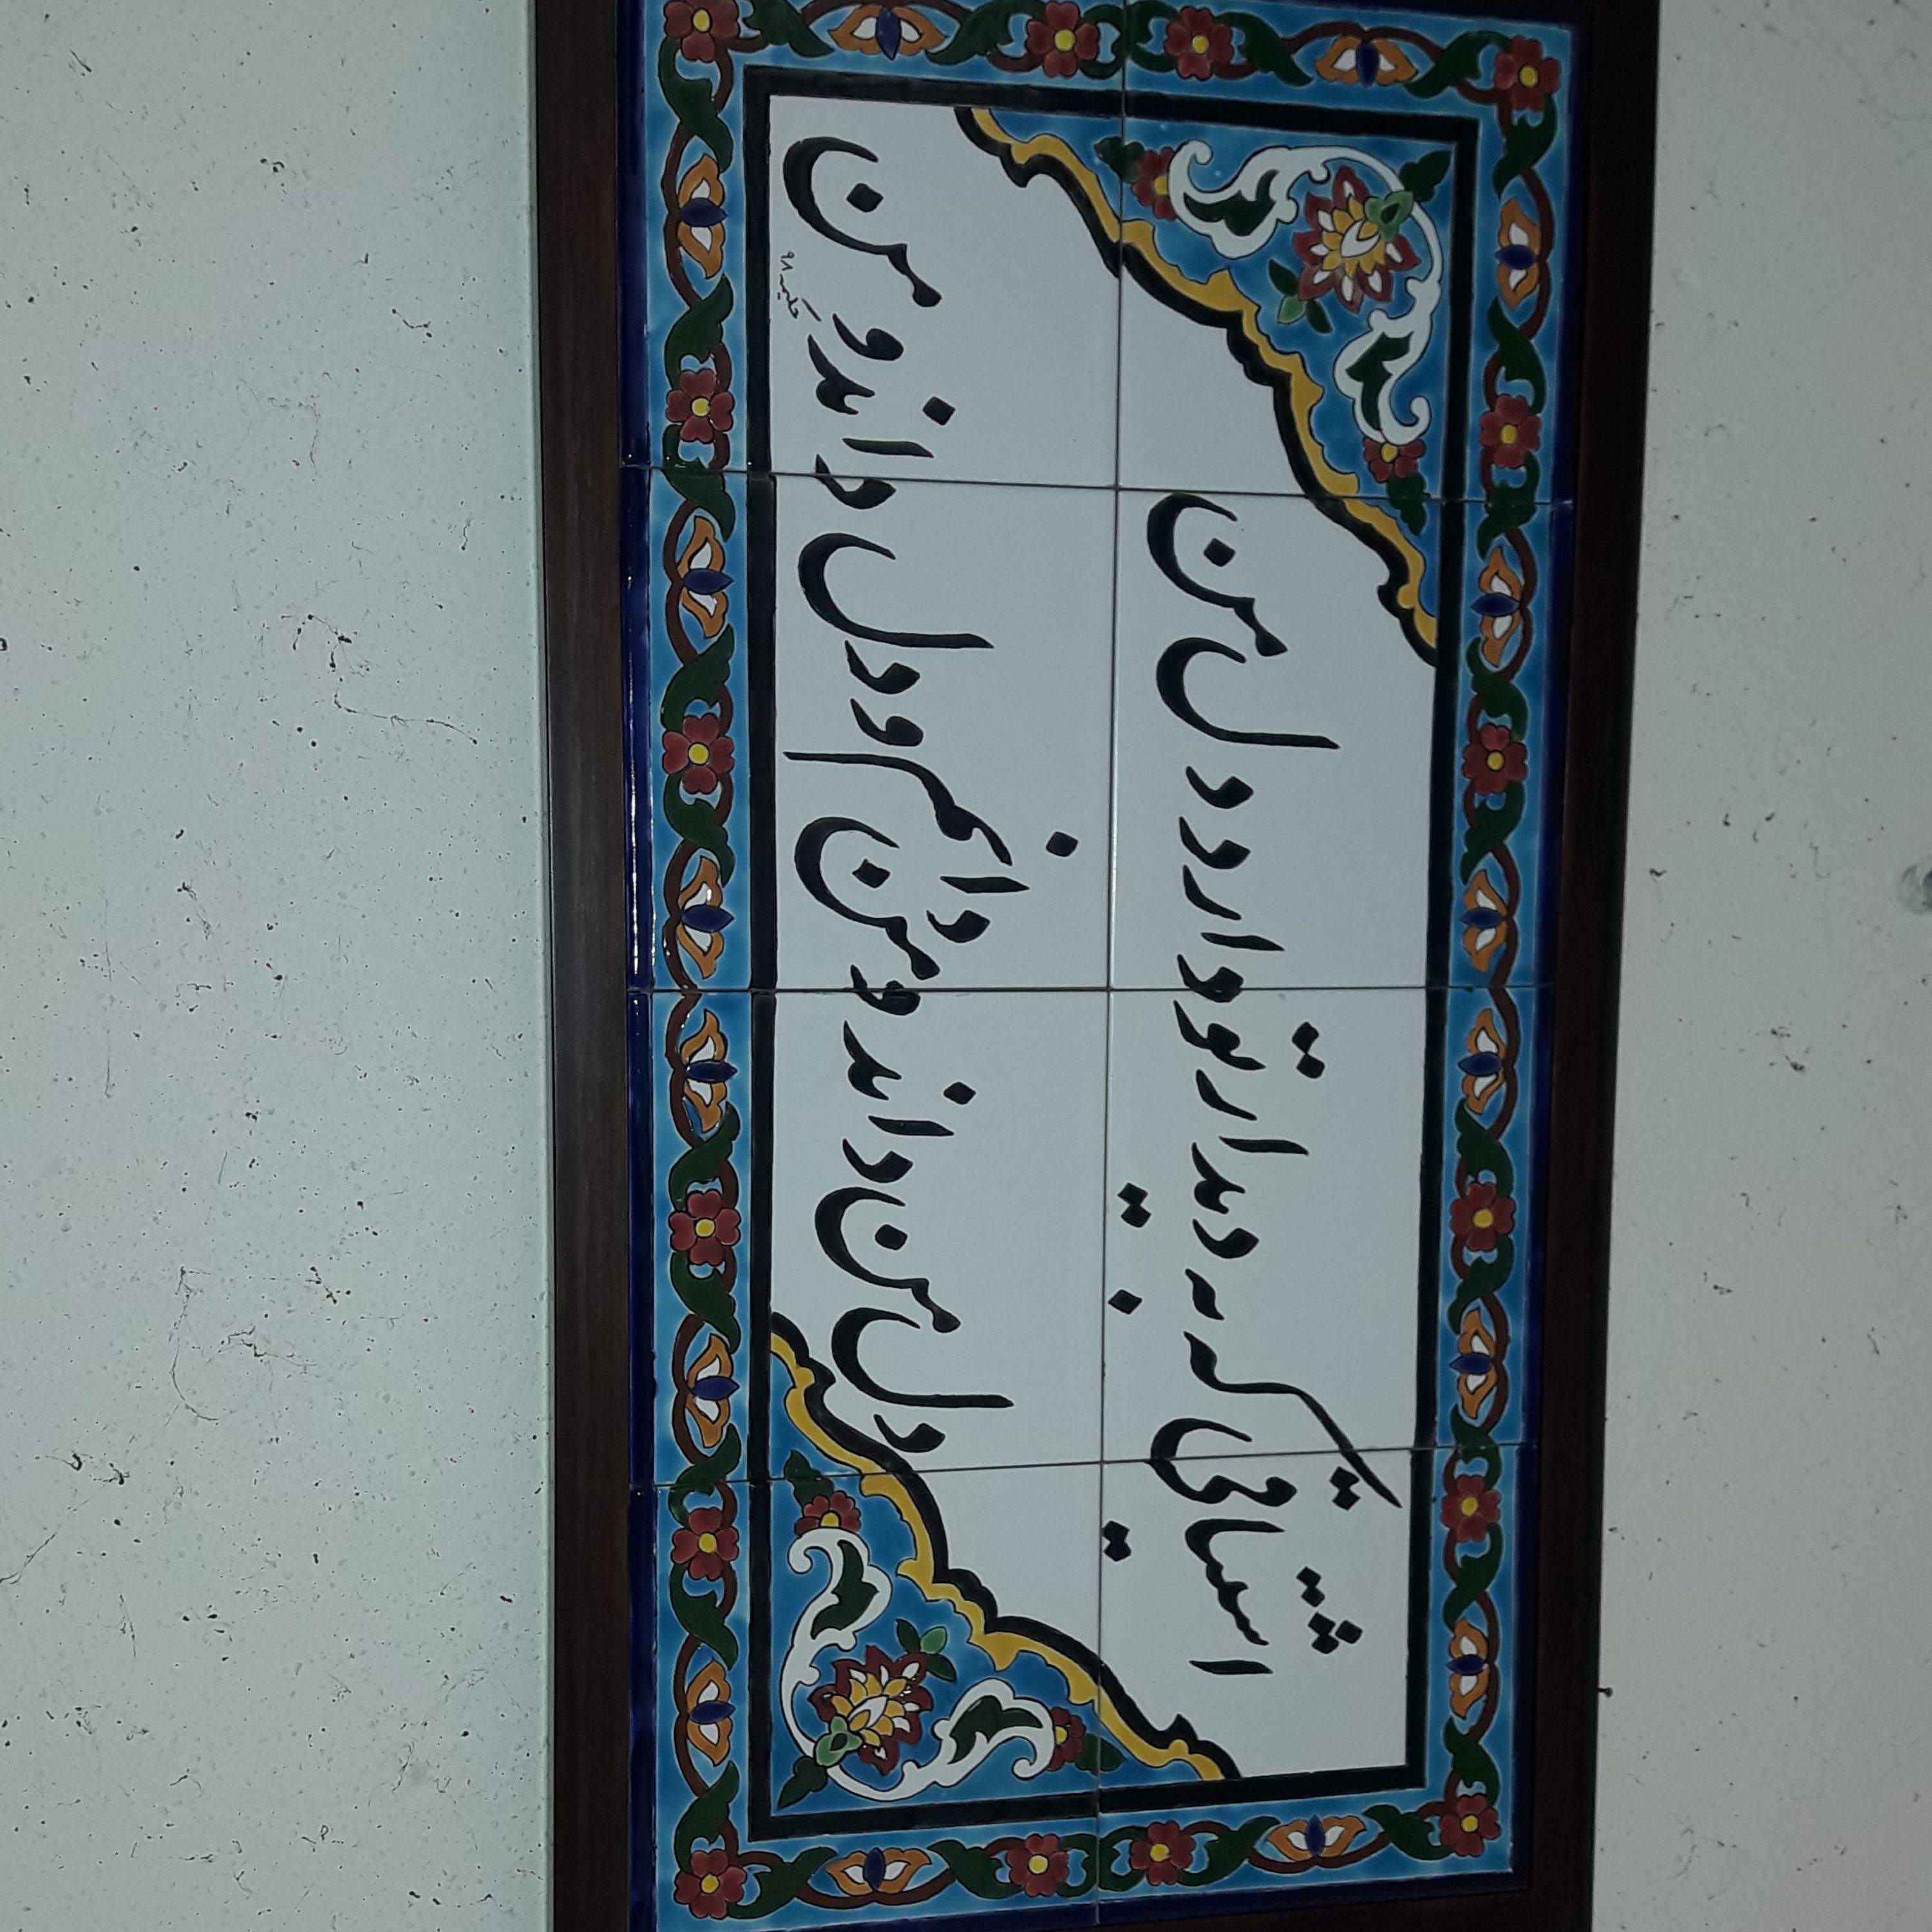 اشتیاقی که به دیدار تو دارد دل من
دل من داند و من دانم و دل داند و من
حکیمه ۹۸